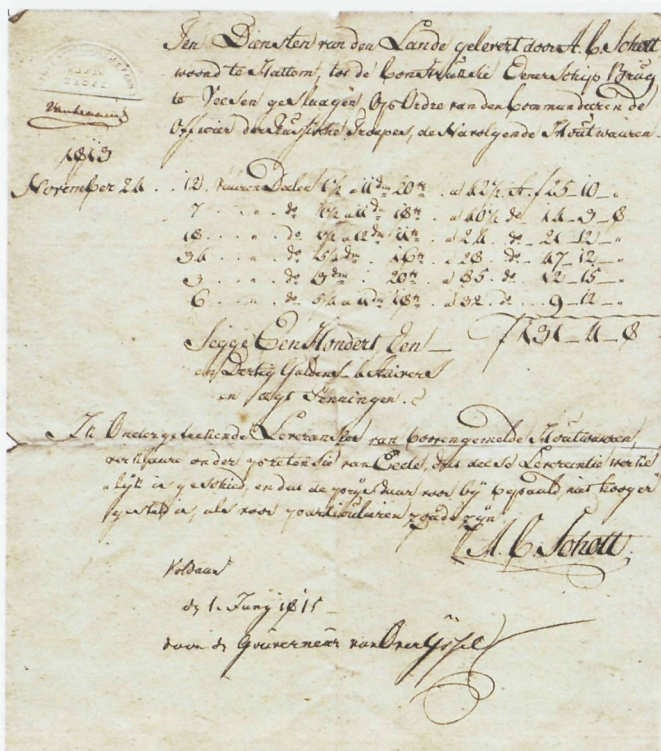 Ten Diensten van den Lande gelevert door A. C. Schott
woond te Hattem, tot de Construktie Eener Schip Brug
te Veesen geslaagen, Op Ordre van den Commandeeren de
Officier der Russische Troepen, de Navolgende Houtwaaren.
1813
November 24 . . 12 vuuren Deelen 1½ a 11 dm 20 vt . a 42½ st. f 25 - 10 - "
7 . . " . do 1½ a 11 dm 18 vt . a 40½ do . 14 - 3 - 8
18 . . " . do a 12 dm 11 vt . a 24 . do - 21 - 12 - "
34 . . " . do dm . 16 vt . a 28 . do . 47 - 12 - "
3 . . " . do 3 dm . 20 vt . a 85 . do . 12 - 15 - "
6 . . " . do a 11 dm 18 vt . a 32 . do . . 9 - 12 - "
Segge Een Hondert Een f 131 - 4 - 8
en Dertig Guldens 4 Stuivers
en agt Penningen.
Ik Ondergeteekende Leverancier van boovengemelde Houtwaaren,
verklaare onder presentatie van Eede, dat deese Leverantie werke
lijk is geschied, en dat de prijs daar voor bij bepaald, niet hooger
gesteld is, als voor particulieren zoude zijn
A. C. Schott.
Voldaan
den 1. Junij 1815
door de Gouverneur van Over Yssel